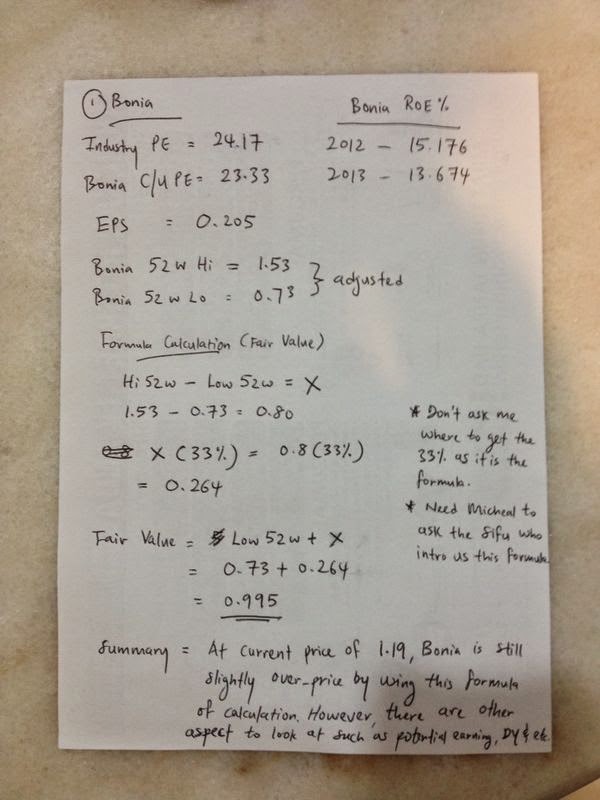 ① Bonia
Bonia ROE %
Industry PE = 24.17
2012 - 15.176
Bonia C/U PE = 23.33
2013 - 13.674
EPS = 0.205
Bonia 52 w Hi = 1.53
Bonia 52 w Lo = 0.73
} adjusted
Formula Calculation (Fair Value)
Hi 52w - Low 52w = X
1.53 - 0.73 = 0.80
X (33%) = 0.8 (33%)
= 0.264
* Don't ask me
where to get the
33% as it is the
formula.
* Need Micheal to
ask the Sifu who
intro us this formula
Fair Value = Low 52w + X
= 0.73 + 0.264
= 0.995
Summary = At current price of 1.19, Bonia is still
slightly over-price by using this formula
of calculation. However, there are other
aspect to look at such as potential earning, DY & etc.